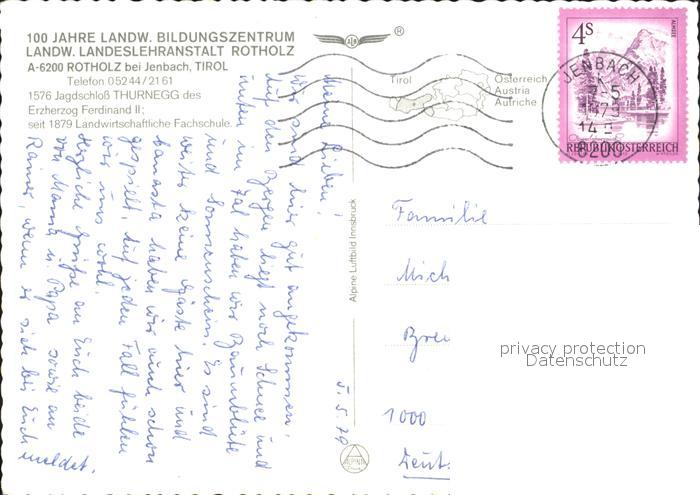 100 JAHRE LANDW. BILDUNGSZENTRUM
LANDW. LANDESLEHRANSTALT ROTHOLZ
A-6200 ROTHOLZ bei Jenbach, TIROL
Telefon 05244/2161
1576 Jagdschloß THURNEGG des
Erzherzog Ferdinand II;
seit 1879 Landwirtschaftliche Fachschule.
®
Tirol
Österreich
Austria
Autriche
4S
ALMSEE
REPUBLIK ÖSTERREICH
JENBACH
6200
Meine Lieben!
Wir sind hier gut angekommen,
auf den Bergen liegt noch Schnee und
unten im Tal haben wir Baumblüte
und Sonnenschein. Es sind
weiter keine Gäste hier und
Canasta haben wir auch schon
gespielt. Auf jeden Fall fühlen
wir uns wohl.
Herzliche Grüße an Euch beide
von Mama u. Papa sowie an
Rainer, wenn er sich bei Euch
meldet.
5. 5. 79
Alpine Luftbild Innsbruck
Familie
Mich
1000
privacy protection
Datenschutz